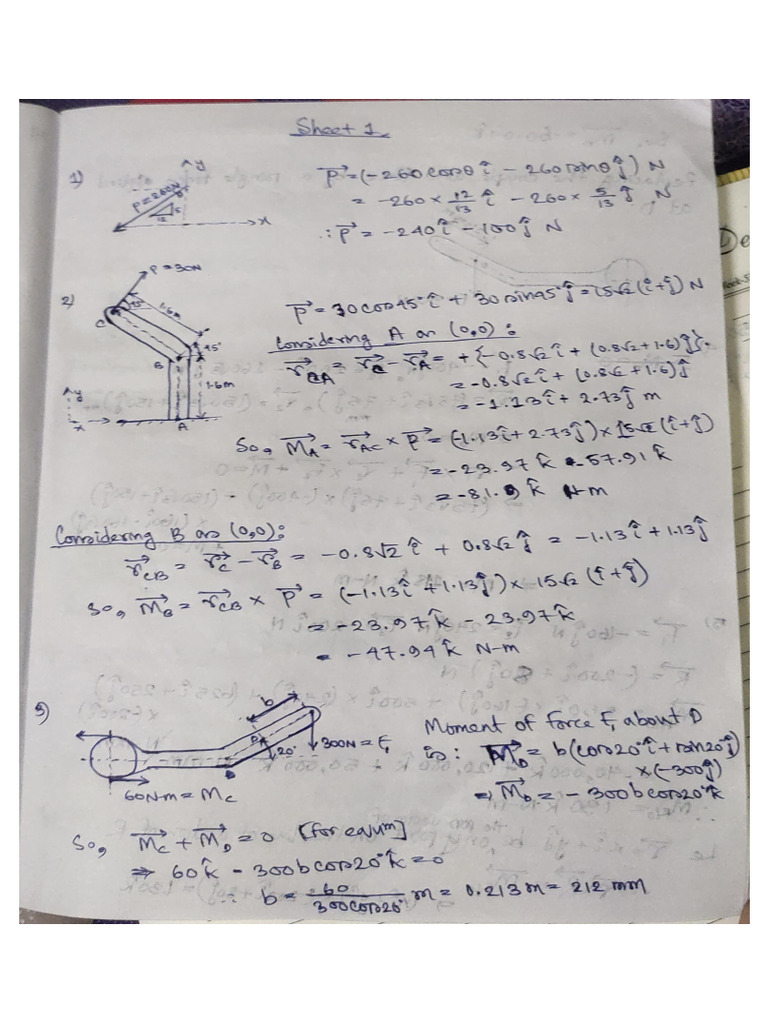 Sheet 1
1) y
P=260N
5
12
x
P⃗=(-260cosθ î - 260sinθ ĵ) N
= -260×12/13 î - 260×5/13 ĵ N
∴ P⃗ = -240 î - 100 ĵ N
2) P=30N
C
45°
1.6m
45°
B
1.6m
y
x
A
P⃗ = 30cos45° î + 30sin45° ĵ = 15√2 (î+ĵ) N
Considering A as (0,0):
r⃗CA = r⃗C - r⃗A = +{-0.8√2 î + (0.8√2+1.6) ĵ}
= -0.8√2 î + (0.8√2+1.6) ĵ
= -1.13 î + 2.73 ĵ m
So, M⃗A = r⃗AC × P⃗ = (-1.13 î + 2.73 ĵ) × 15√2 (î+ĵ)
= -23.97 k̂ - 57.91 k̂
= -81.9 k̂ N-m
Considering B as (0,0):
r⃗CB = r⃗C - r⃗B = -0.8√2 î + 0.8√2 ĵ = -1.13 î + 1.13 ĵ
So, M⃗B = r⃗CB × P⃗ = (-1.13 î + 1.13 ĵ) × 15√2 (î+ĵ)
= -23.97 k̂ - 23.97 k̂
= -47.94 k̂ N-m
b
20°
300N = F1
60N-m = MC
Moment of force F1 about D
is: M⃗D = b(cos20° î + sin20° ĵ)
×(-300 ĵ)
⇒ M⃗D = -300bcos20° k̂
So, M⃗C + M⃗D = 0 [for equm]
⇒ 60 k̂ - 300bcos20° k̂ = 0
∴ b = 60/300cos20° m = 0.213m = 212 mm